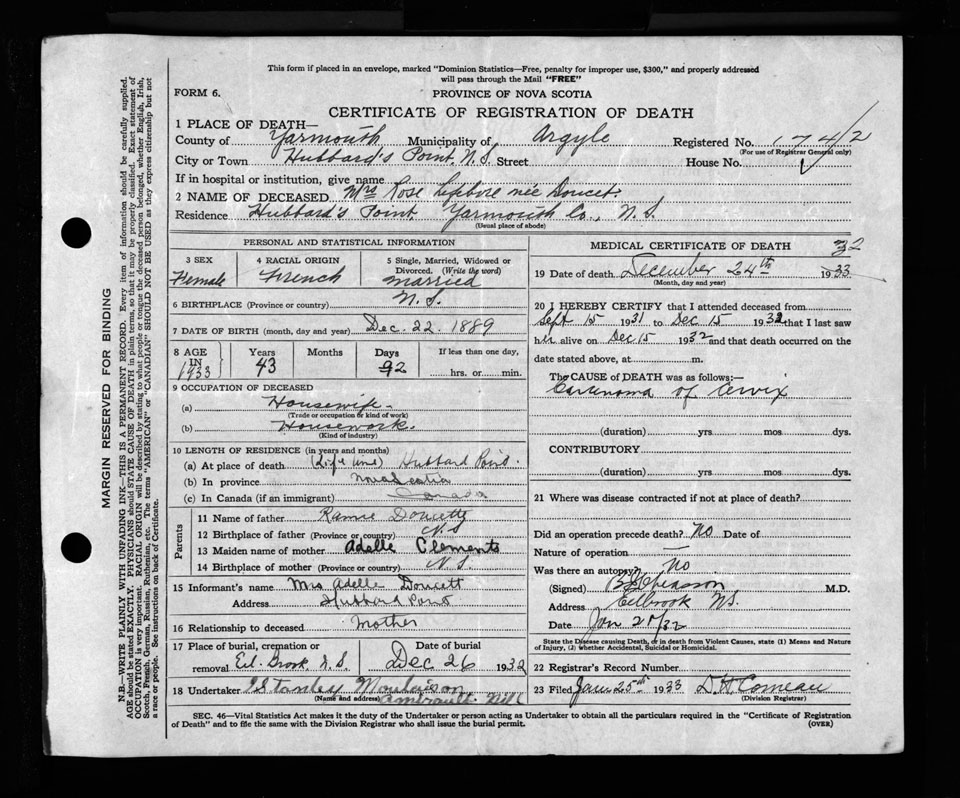 This form if placed in an envelope, marked "Dominion Statistics—Free, penalty for improper use, $300," and properly addressed
will pass through the Mail "FREE"
FORM 6.
PROVINCE OF NOVA SCOTIA
CERTIFICATE OF REGISTRATION OF DEATH
1 PLACE OF DEATH—
County of Yarmouth Municipality of Argyle Registered No. 1742
(For use of Registrar General only)
City or Town Hubbard's Point, N.S. Street House No.
If in hospital or institution, give name
2 NAME OF DECEASED Mrs Rose née Doucet.
Residence Hubbard's Point Yarmouth Co., N.S.
(Usual place of abode)
PERSONAL AND STATISTICAL INFORMATION
3 SEX 4 RACIAL ORIGIN 5 Single, Married, Widowed or
Divorced. (Write the word)
Female French married
6 BIRTHPLACE (Province or country) N.S.
7 DATE OF BIRTH (month, day and year) Dec. 22. 1889
8 AGE Years Months Days If less than one day,
IN
1933 43 hrs. or min.
9 OCCUPATION OF DECEASED
(a) Housewife
(Trade or occupation or kind of work)
(b) Housework.
(Kind of industry)
10 LENGTH OF RESIDENCE (in years and months)
(a) At place of death (Life time) Hubbard Point.
(b) In province Nova Scotia
(c) In Canada (if an immigrant) Canada
Parents
11 Name of father Doucette
12 Birthplace of father (Province or country) N.S
13 Maiden name of mother Adelle Clements
14 Birthplace of mother (Province or country) N S
15 Informant's name Mrs Adelle Doucett
Address Hubbard Point
16 Relationship to deceased Mother
17 Place of burial, cremation or Date of burial
removal Eel Brook N.S. Dec 26 1932
18 Undertaker Stanley
(Name and address) Amirault Hill
MEDICAL CERTIFICATE OF DEATH
32
19 Date of death December 24th 1933
(Month, day and year)
20 I HEREBY CERTIFY that I attended deceased from
Sept 15 1931 to Dec 15 1932 that I last saw
her alive on Dec 15 1932 and that death occurred on the
date stated above, at m.
The CAUSE OF DEATH was as follows:—
Carcinoma of Cervix
(duration) yrs mos dys.
CONTRIBUTORY
(duration) yrs mos dys.
21 Where was disease contracted if not at place of death?
Did an operation precede death? No Date of
Nature of operation —
Was there an autopsy? No
(Signed) M.D.
Address Eelbrook NS.
Date Jan
State the Disease causing Death, or in death from Violent Causes, state (1) Means and Nature
of Injury, (2) whether Accidental, Suicidal or Homicidal.
22 Registrar's Record Number
23 Filed Jan 25th 1933 Comeau
(Division Registrar)
SEC. 46—Vital Statistics Act makes it the duty of the Undertaker or person acting as Undertaker to obtain all the particulars required in the "Certificate of Registration
of Death" and to file the same with the Division Registrar who shall issue the burial permit. (OVER)
MARGIN RESERVED FOR BINDING
N.B.—WRITE PLAINLY WITH UNFADING INK—THIS IS A PERMANENT RECORD. Every item of information should be carefully supplied.
AGE should be stated EXACTLY. PHYSICIANS should STATE CAUSE OF DEATH in plain terms, so that it may be properly classified. Exact statement of
OCCUPATION is very important. RACIAL ORIGIN will be described by stating to what people or tongue the deceased person belonged, whether English, Irish,
Scotch, French, German, Russian, Ruthenian, etc. The terms "AMERICAN" or "CANADIAN" SHOULD NOT BE USED as they express citizenship but not
a race or people. See instructions on back of Certificate.